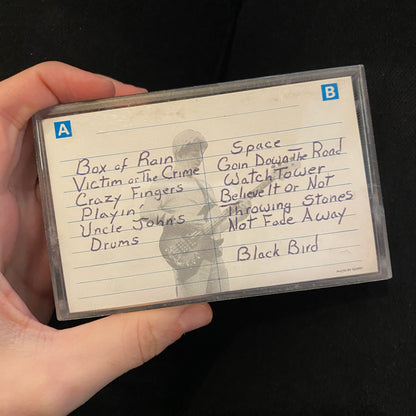 A
Box of Rain
Victim or The Crime
Crazy Fingers
Playin'
Uncle John's
Drums
B
Space
Goin Down The Road
WatchTower
Believe It or Not
Throwing Stones
Not Fade Away
Black Bird